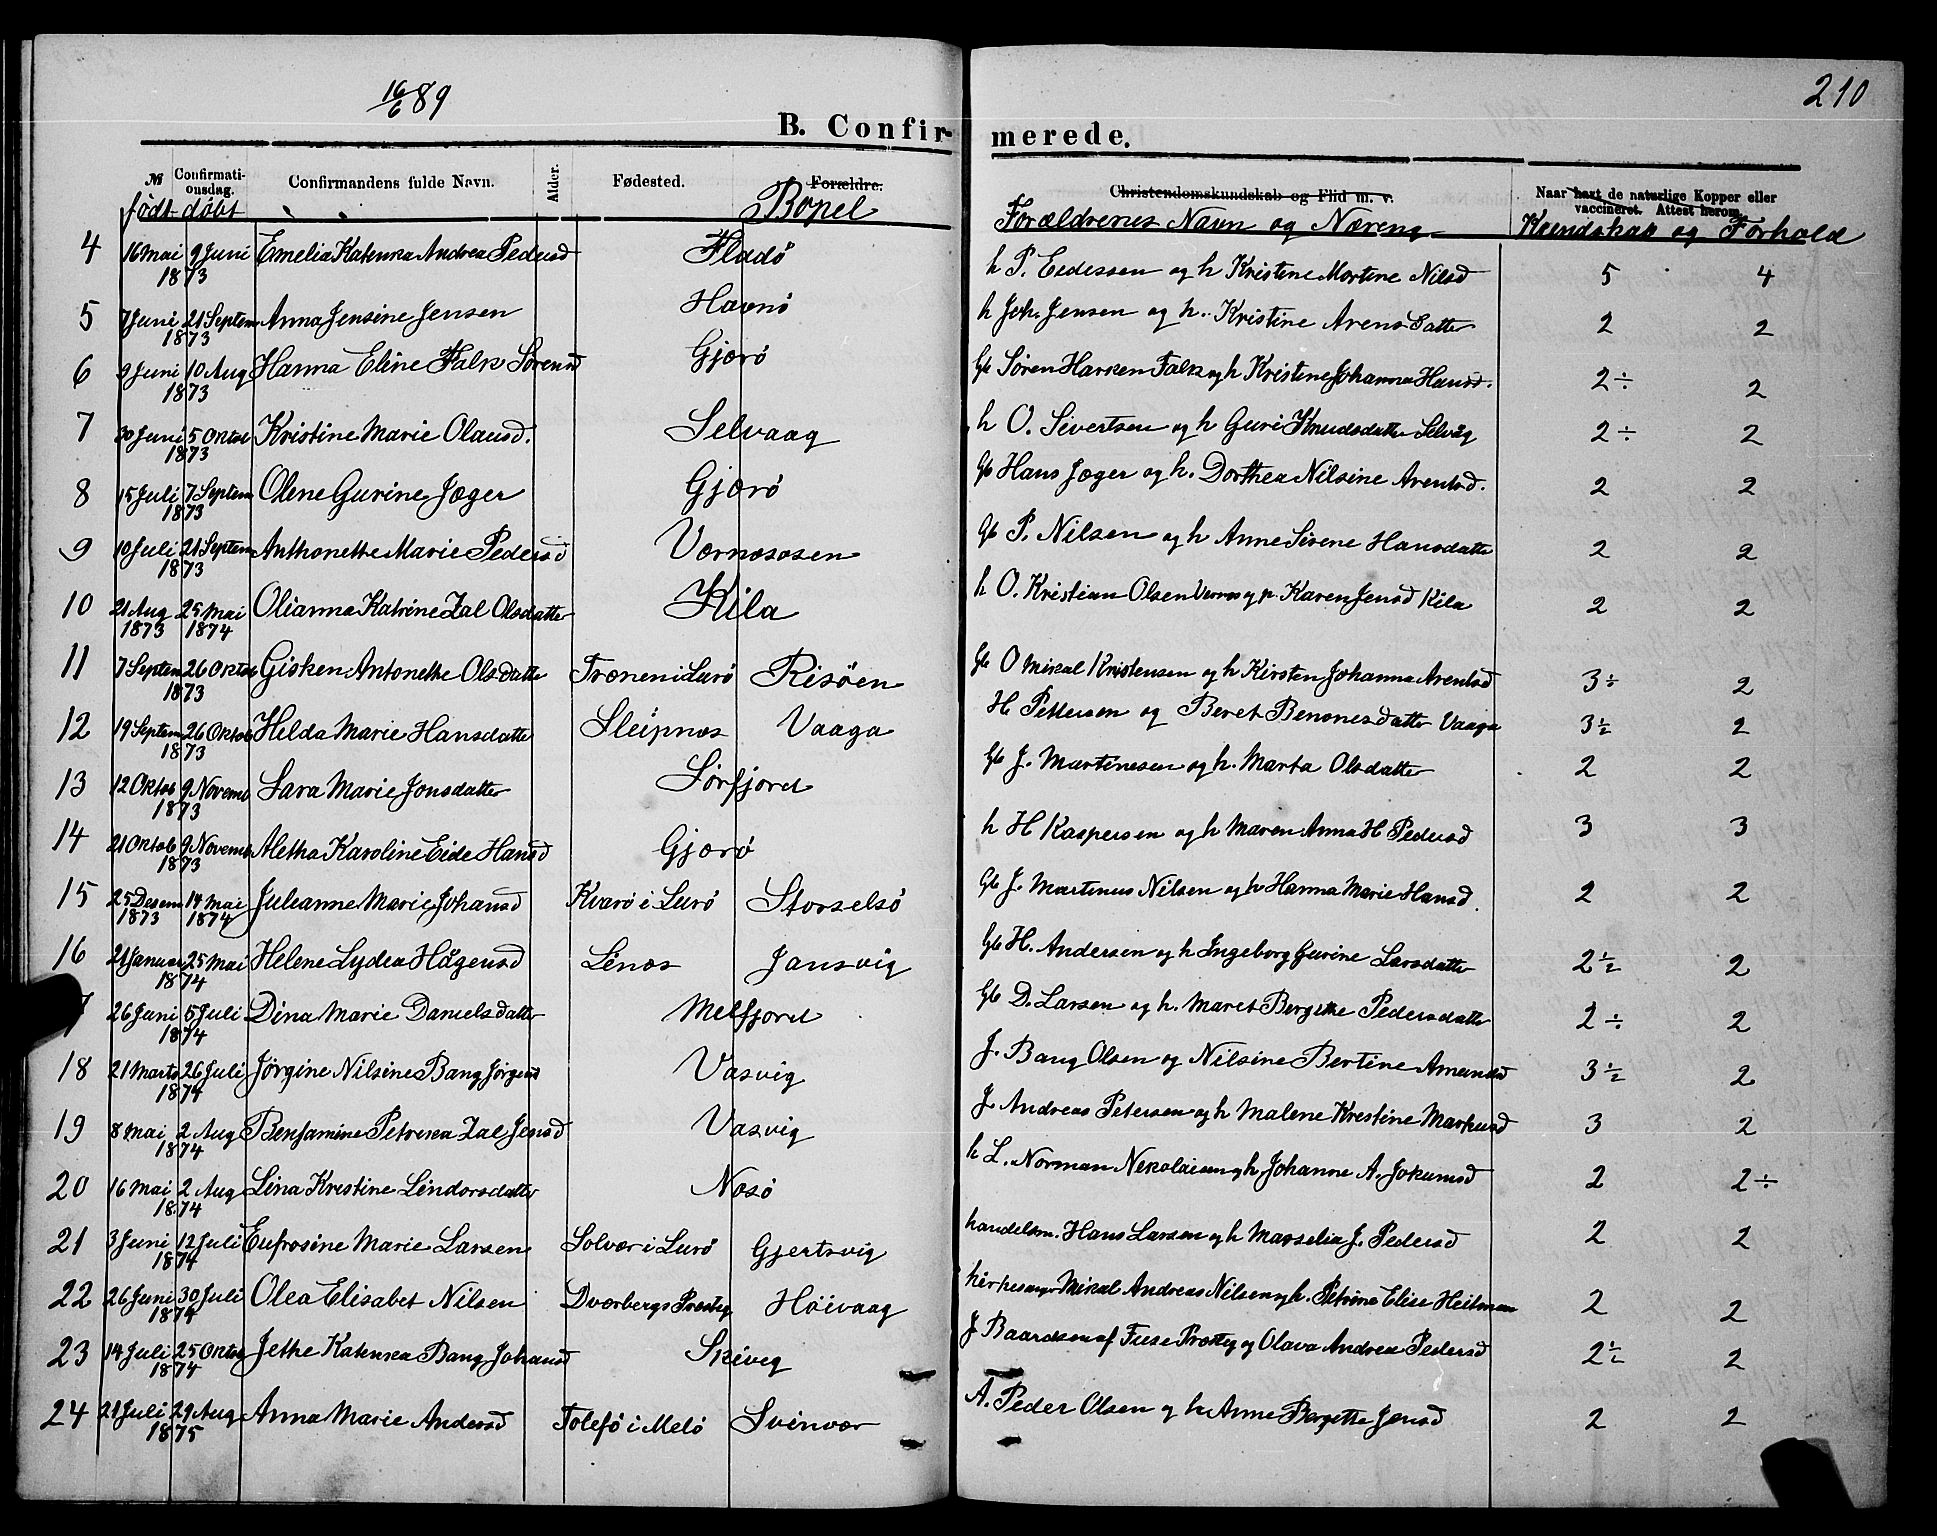 16/6 89
210
B. Confirmerede.
№ Confirmationsdag. Confirmandens fulde Navn. Alder. Fødested. Forældre. Christendomskundskab og Flid m. v. Naar havt de naturlige Kopper eller vaccineret. Attest herom.
født døbt Bopel Forældrenes Navn og Næring Kundskab og Forhold
4 16 Mai 9 Juni 1873 Emelia Katinka Andrea Pedersd Fladö h P. Edessen og h Kristine Martine Nilsd 5 4
5 7 Juni 21 Septem 1873 Anna Jensine Jensen Havnö h Joh. Jensen og h. Kristine Arensdatter 2 2
6 9 Juni 10 Aug 1873 Hanna Eline Falk Sörensd Gjærö Gb Sören Hansen Falk og h Kristine Johanna Hansd. 2÷ 2
7 30 Juni 5 Oktob 1873 Kristine Marie Olausd. Selvaag h O. Sivertsen og h Guri Knudsdatter Selvåg 2÷ 2
8 15 Juli 7 Septem 1873 Olene Gurine Jæger Gjærö Gb Hans Jæger og h. Dorthea Nilsine Arentsd. 2 2
9 10 Juli 21 Septem 1873 Anthonette Marie Pedersd Værnæsosen Gb P. Nilsen og h Anne Sirene Hansdatter 2 2
10 21 Aug 1873 25 Mai 1874 Olianna Katrine Zal Olsdatter Kila h O. Kristian Olsen Værnes og p. Karen Jensd Kila 2 2
11 7 Septem 26 Oktob 1873 Gisken Antonette Olsdatter Trænen i Lurö Risöen Gb O Mikal Kristensen og h Kirsten Johanna Arentsd 3÷ 2
12 19 Septem 26 Oktob 1873 Helda Marie Hansdatter Sleipnæs Vaaga H Pettersen og Beret Bensnesdatter Vaaga 3½ 2
13 12 Oktob 9 Novemb 1873 Sara Marie Jonsdatter Sörfjord Gb J. Martinesen og h. Marta Olsdatter 2 2
14 21 Oktob 9 Novemb 1873 Aletha Karoline Eide Hansd Gjærö h H Kaspersen og h Maren Anna H Pedersd 3 3
15 25 Desem 1873 14 Mai 1874 Julianne Marie Johansd Kvarö i Lurö Storselsö Gb J. Martinus Nilsen og h Hanna Marie Hansd. 2 2
16 21 Januar 25 Mai 1874 Helene Lydea Hågensd Lenæs Jansvig Gb H. Andersen og h Ingeborg Gurine Larsdatter 2½ 2
7 26 Juni 5 Juli 1874 Dina Marie Danielsdatter Melfjord Gb D. Larsen og h. Maret Bergitte Pedersdatter 2÷ 2
18 21 Marts 26 Juli 1874 Jörgine Nilsine Bang Jörgensd Vasvig J. Bang Olsen og Nilsine Bertine Amundsd 3½ 2
19 8 Mai 2 Aug 1874 Benjamine Petrikka Zal Jensd Vasvig J. Andreas Petersen og h Malene Krestine Markusd 3 2
20 16 Mai 2 Aug 1874 Lina Kristine Lendorsdatter Næsö h L. Norman Nekolaisen og h Johanne A. Jokumsd 2 2÷
21 3 Juni 12 Juli 1874 Eufrosine Marie Larsen Solvær i Lurö Gjertsvig handelsm. Hans Larsen og h Marselia J. Pedersd 2 2
22 26 Juni 30 Juli 1874 Olea Elisabet Nilsen Dverbergs Præsteg Höivaag kirkesanger Mikal Andreas Nilsen og h. Petrine Elise Heitman 2 2
23 14 Juli 25 Oktob 1874 Jethe Katinka Bang Johansd Skiveg J Baardsen af Præsteg og Olava Andrea Pedersd 2½ 2
24 21 Juli 29 Aug 1875 Anna Marie Andersd Tolefö i Melö Svinvær A. Peder Olsen og h. Anne Bergitte Jensd 2 2